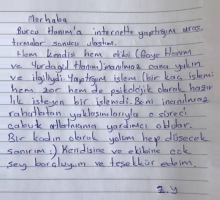 Merhaba
Burcu Hanım'a internette yaptığım araş
tırmalar sonucu ulaştım.
Hem kendisi hem ekibi (Gaye Hanım
ve Yurdagül Hanım) inanılmaz cana yakın
ve ilgiliydi. Yaptığım işlem (bir kaç işlem)
hem zor hem de psikolojik olarak hazır
lık isteyen bir işlemdi. Beni inanılmaz
rahatlatan yaklaşımlarıyla o süreci
çabuk atlatmama yardımcı oldular.
Bir kadın olarak yolum hep düşecek
sanırım :) Kendisine ve ekibine çok
şey borçluyum ve teşekkür ederim.
Z.Y